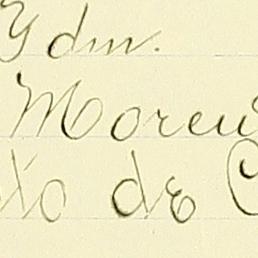 Ydm.
Moreu
to de C